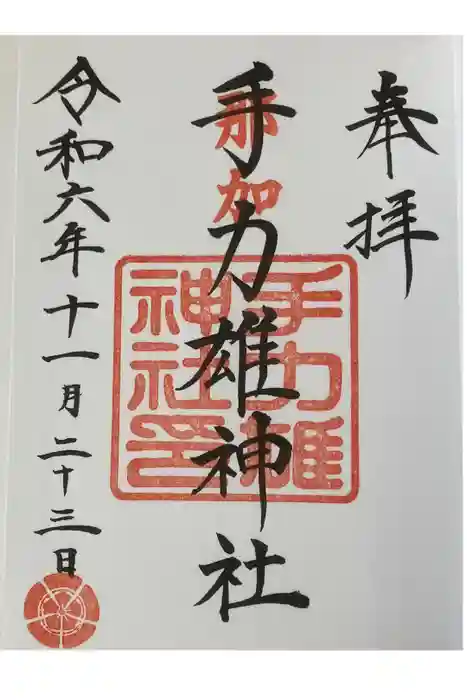 奉拝
那加
手力雄神社
手力雄
神社印
令和六年十一月二十三日